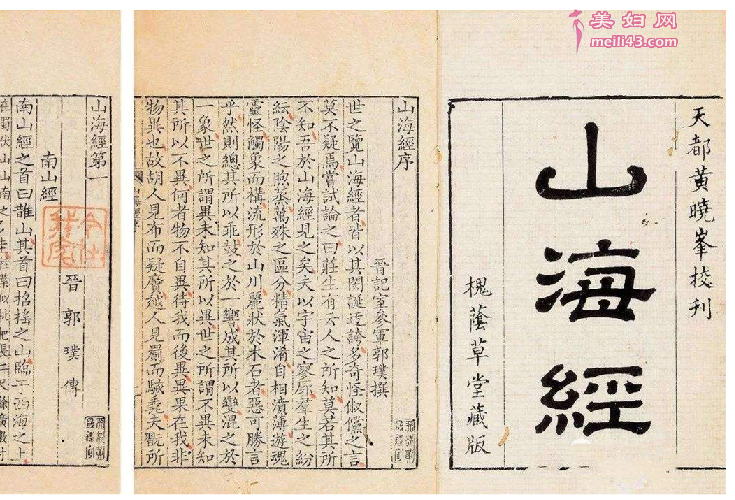 美妇网
meili43.com
天都黄曉峯挍刊
山海經
槐蔭草堂藏版
山海經序
晉記室參軍郭璞撰
世之覽山海經者皆以其閎誕迂誇多奇怪俶儻之言
莫不疑焉嘗試論之曰莊生有云人之所知莫若其所
不知吾於山海經見之矣夫以宇宙之寥廓羣生之紛
紜陰陽之煦蒸萬殊之區分精氣渾淆自相濆薄遊魂
靈怪觸象而構流形於山川麗狀於木石者惡可勝言
乎然則總其所以乖鼓之於一響成其所以變混之於
一象世之所謂異未知其所以異世之所謂不異未知
其所以不異何者物不自異待我而後異異果在我非
物異也故胡人見布而疑黂越人見罽而駭毳夫翫所
山海經第一
南山經
晉郭璞傳
南山經之首曰䧿山其首曰招搖之山臨于西海之上